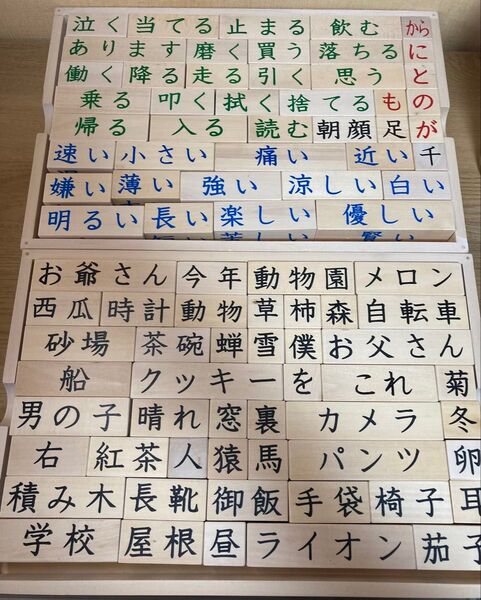 泣く 当てる 止まる 飲む から
あります 磨く 買う 落ちる に
働く 降る 走る 引く 思う と
乗る 叩く 拭く 捨てる も の
帰る 入る 読む 朝顔 足 が
速い 小さい 痛い 近い 千
嫌い 薄い 強い 涼しい 白い
明るい 長い 楽しい 優しい
お爺さん 今年 動物園 メロン
西瓜 時計 動物 草 柿 森 自転車
砂場 茶碗 蝉 雪 僕 お父さん
船 クッキー を これ 菊
男の子 晴れ 窓 裏 カメラ 冬
右 紅茶 人 猿 馬 パンツ 卵
積み木 長靴 御飯 手袋 椅子 耳
学校 屋根 昼 ライオン 茄子